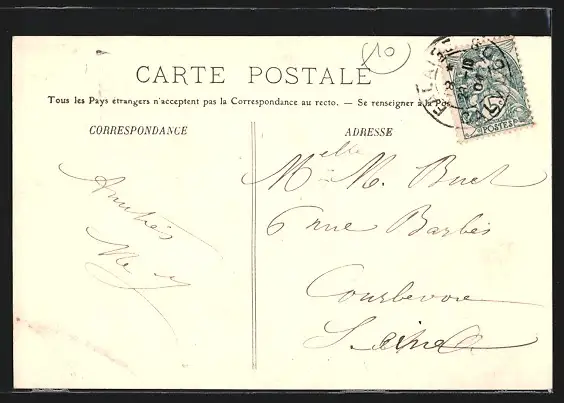 (10)
CARTE POSTALE
Tous les Pays étrangers n'acceptent pas la Correspondance au recto. — Se renseigner à la Pos
CORRESPONDANCE
ADRESSE
Amitiés
Melle M. Buet
6 rue Barbès
Courbevoie
Seine
POSTES